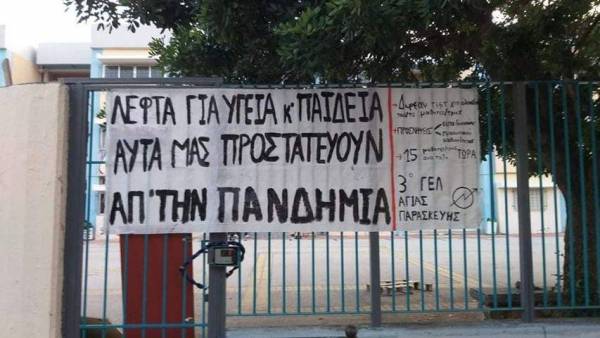 ΛΕΦΤΑ ΓΙΑ ΥΓΕΙΑ κ' ΠΑΙΔΕΙΑ
ΑΥΤΑ ΜΑΣ ΠΡΟΣΤΑΤΕΥΟΥΝ
ΑΠ' ΤΗΝ ΠΑΝΔΗΜΙΑ
→ Δωρεάν τεστ
→ ΠΡΟΣΛΗΨΕΙΣ
→ 15 ΤΩΡΑ
3° ΓΕΛ
ΑΓΙΑΣ
ΠΑΡΑΣΚΕΥΗΣ